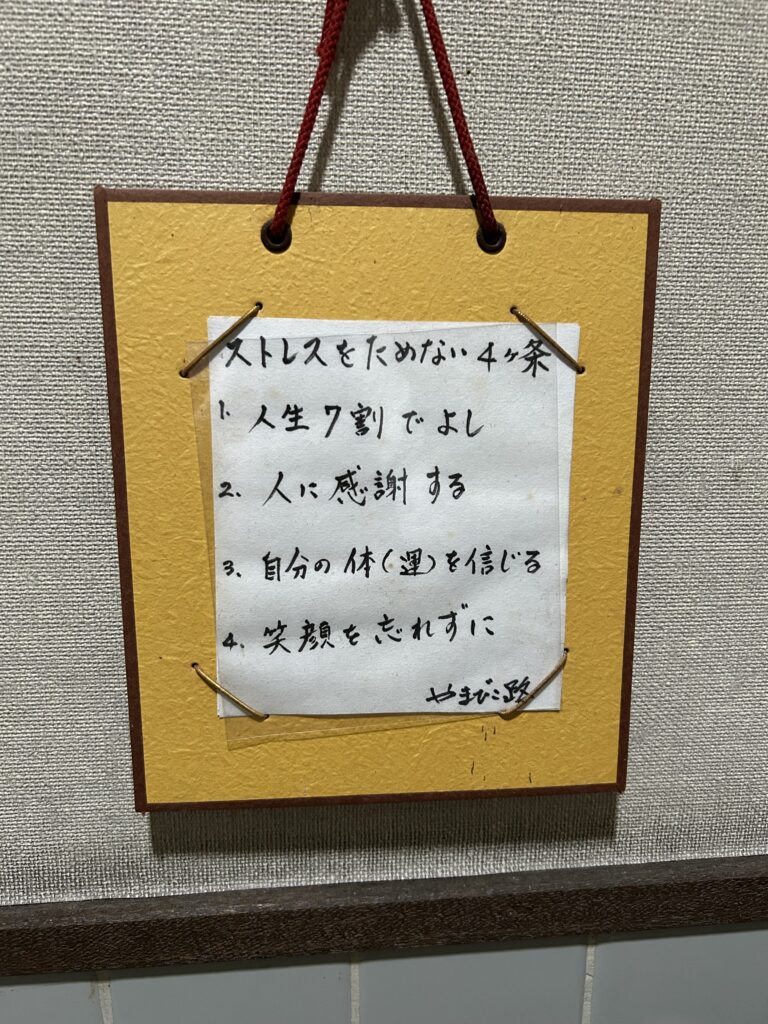 ストレスをためない4ヶ条
1. 人生7割でよし
2. 人に感謝する
3. 自分の体(運)を信じる
4. 笑顔を忘れずに
やまびこ路